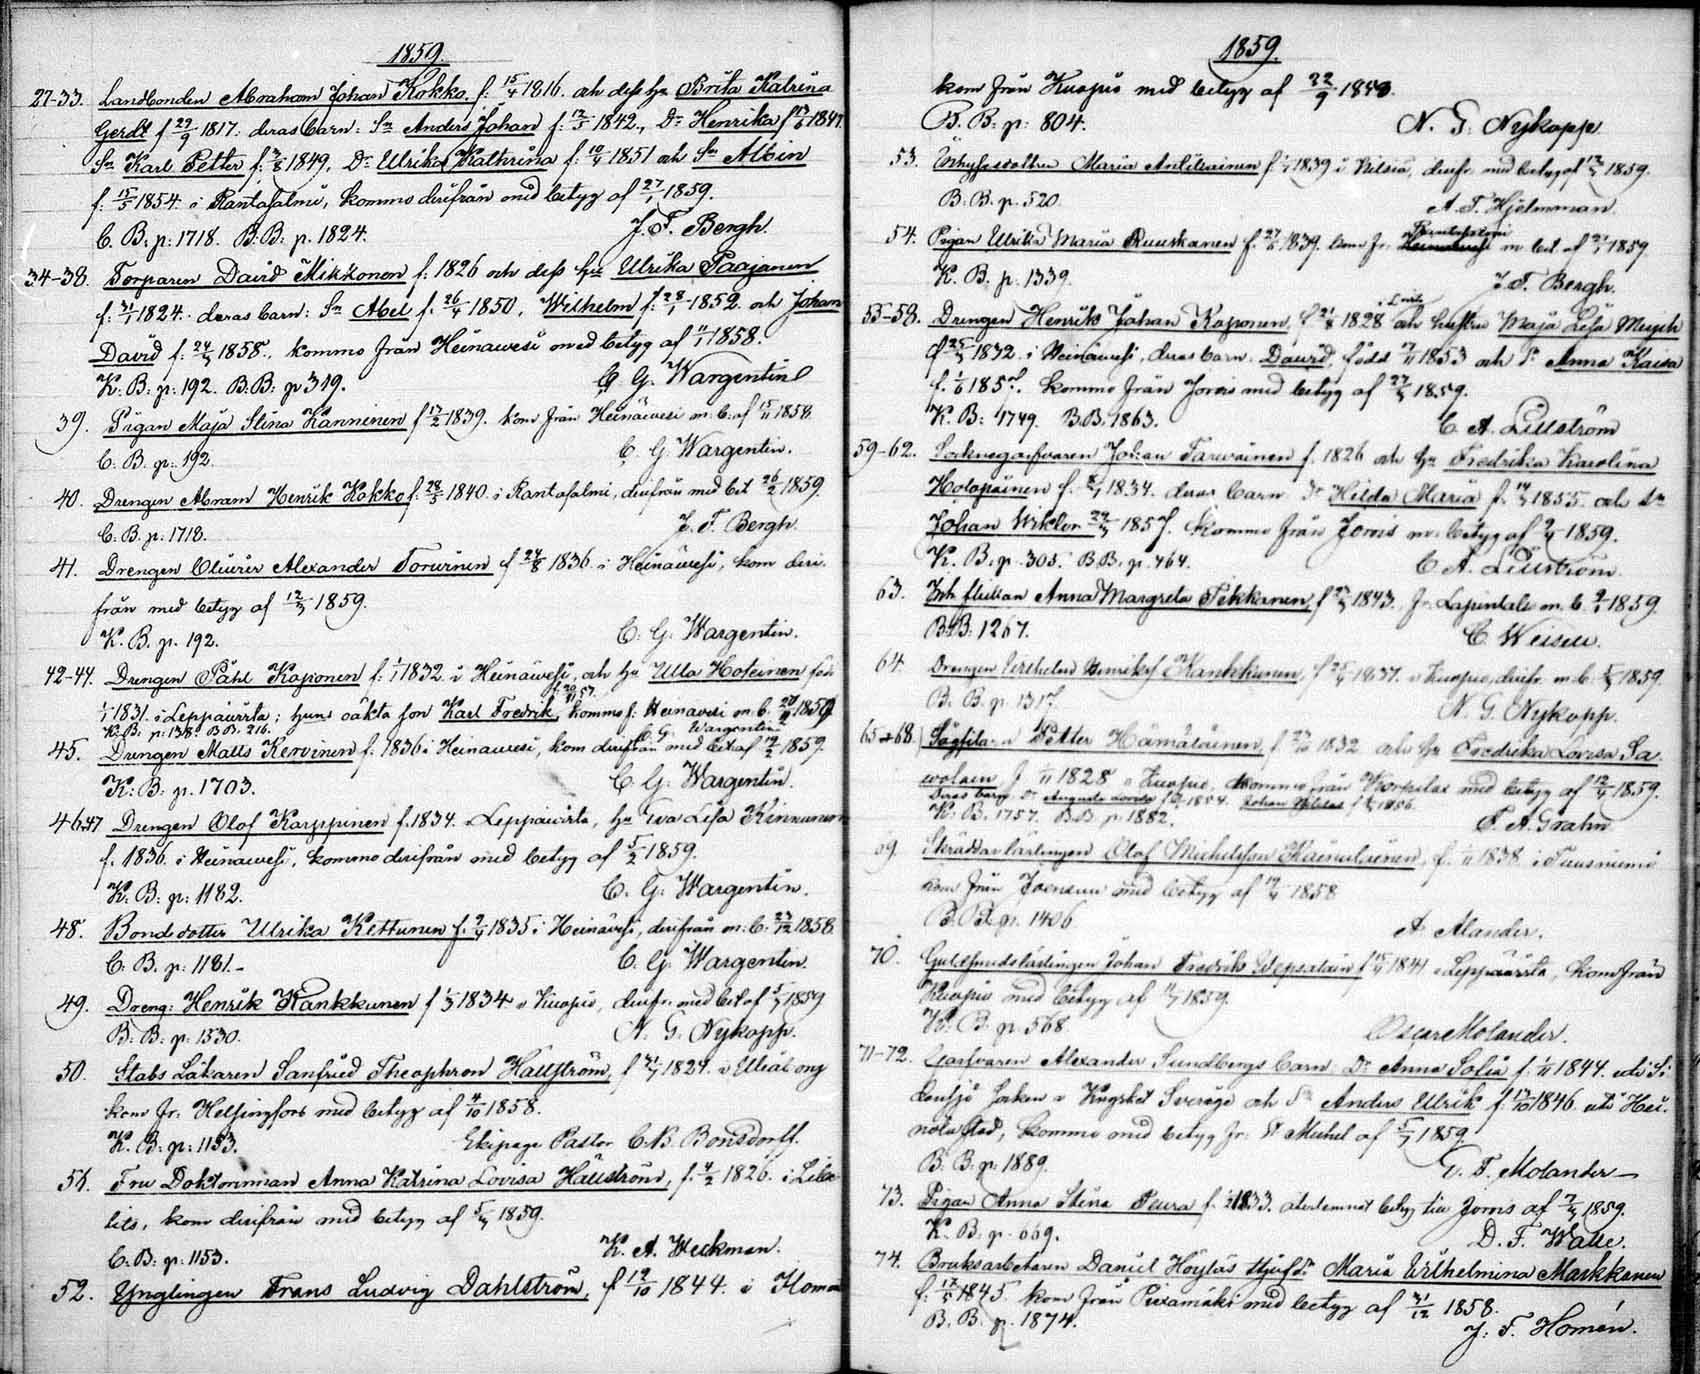 1859.
27-33. Landbonden Abraham Johan Kokko f. 15/4 1816. och dess hu Brita Katrina
Gerdt f 29/9 1817. deras barn: Sn Anders Johan f: 12/5 1842., Dr Henrika f 1847
Sn Karl Petter f. 3/8 1849, Dr Ulrika Kathrina f. 10/4 1851 och Sn Albin
f. 15/5 1854. i Rantasalmi, kommo derifrån med betyg af 27/1 1859.
C. B. p: 1718. B. B. p. 1824. J. F. Bergh.
34-38. Torparen David Mikkonen f: 1826 och dess hu Ulrika Paajanen
f: 31/1 1824. deras barn: Sn Abel f. 26/4 1850, Wilhelm f. 28/1 1852. och Johan
David f. 24/3 1858., kommo från Heinawesi med betyg af 1858.
K. B. p: 192. B. B: p 319. C. G. Wargentin
39. Pigan Maja Stina Kanninen f 17/2 1839. kom från Heinäwesi m: b. af 15/11 1858.
C. B. p: 192. C. G. Wargentin.
40. Drengen Abram Henrik Kokko f: 28/3 1840. i Rantasalmi, derifrån med bet 26/2 1859.
C. B. p. 1718. J. F. Bergh
41. Drengen Olivier Alexander Torvinen f 24/8 1836. i Heinäwesi, kom deri-
från med betyg af 12/3 1859.
K. B. p. 192. C. G. Wargentin.
42-44. Drengen Påhl Kaponen f: 1/1 1832. i Heinäwesi, och hu Ulla Hoteinen född
1/1 1831. i Leppävirta; hans oäkta son Karl Fredrik, kommo f. Heinavesi m: b.
K. B. p: 138. B. B. 216. C. G. Wargentin
45. Drengen Matts Kervinen f. 1836 i Heinawesi, kom derifrån med bet af 1859.
K: B: p. 1703. C. G. Wargentin.
46-47 Drengen Olof Karppinen f. 1834. i Leppäwirta, hu Eva Lisa Kinnunen
f. 1836. i Heinawesi, kommo derifrån med betyg af 5/2 1859.
K. B: p: 1182. C. G. Wargentin.
48. Bondedotter Ulrika Kettunen f. 1835 i Heinäwesi, derifrån m: b. 23/12 1858.
C. B. p: 1181.- C. G. Wargentin.
49. Dreng: Henrik Kankkunen f 1/3 1834 i Kuopio, derifr. med bet af 1859
B. B: p: 1330. N. G. Nykopp.
50. Stabs Läkaren Sanfrid Theophron Hällström, f 1824. i Uleåborg
kom fr: Helsingfors med betyg af 4/10 1858.
K. B: p: 1153. Ekipage Pastor C. B. Bonsdorff.
51. Fru Doktorinnan Anna Katrina Lovisa Hällström, f. 4/2 1826. i Libe-
lits, kom derifrån med betyg af 1859.
C. B: p: 1153. K. A. Weckman.
52. Ynglingen Frans Ludvig Dahlström, f 19/10 1844. i
1859.
kom från Kuopio med betyg af 22/9
B. B: p: 804. N. G. Nykopp
53. Maria Antikainen f. 1839 i derifr. med betyg af 1859.
B: B. p. 520. A. F. Hjelmman.
54. Pigan Ulrika Maria Ruuskanen f. 27/6 1839. kom fr. Rantasalmi m bet af 1859.
K. B. p. 1339. J. F. Bergh.
55-58. Drengen Henrik Johan Kaponen, f 21/8 1828 och hustru Maja Lisa
f 25/3 1832. i Heinäwesi, deras barn. David, född 1853 och Dr Anna Kaisa
f. 1/6 1857. kommo från Jorois med betyg af 1859.
K. B: 1749. B. B. 1863. C. A. Lillström
59-62. Sockengarfvaren Johan Tarvainen f. 1826 och hu Fredrika Karolina
Holopainen f. 1834. deras barn Dr Hilda Maria f. 1855. och Sn
Johan Wiktor 1857. kommo från Jorois m: betyg af 1859.
K. B. p. 305. B. B. p. 464. C. A. Lillström.
63. Anna Margreta Pekkanen, f 1843. fr. Lapinlaks m. b. 1859.
B. B: 1267. C Weisell.
64. Drengen Wilhelm Henriksf Kankkunen, f 1837. i Kuopio, derifr. m: b. 1859.
B. B. p. 1317. N. G. Nykopp.
65-68. Petter Hämäläinen, f 1832. och hu Fredrika Lovisa Sa-
wolain f 1828 i Kuopio, kommo från Korpilax med betyg af 12/4 1859.
deras barn: Dr Augusta Lovisa f 1854. Johan 1856.
K. B. 1757. B. B. p. 1882. F. A. Grahn
69. Skräddarlärlingen Olof Michelsson Kainulainen, f. 1838. i Tuusniemi
kom från Joensuu med betyg af 1858
B. B. p. 1406 A. Alander.
70. Guldsmedslärlingen Johan Fredrik Wepsäläin f 1841 i Leppävirta, kom från
Kuopio med betyg af 1859.
K: B. p. 568. Oscar Molander.
71-72. Garfvaren Alexander Sundbergs barn: Dr Anna Sofia f. 1844. uti
socken i Sverige och Sn Anders Ulrik f. 17/10 1846. uti Hei-
nola stad, kommo med betyg fr: St Michel af 1859
B. B: p: 1889. G. F. Molander
73. Pigan Anna Stina Peura f. 1833. återlemnat betyg till Jorois af 1859.
K. B. p. 669. D. F. Walle.
74. Bruksarbetaren Daniel Höyläs stjufdr Maria Wilhelmina Markkanen
f. 1845. kom från Piexämäki med betyg af 31/12 1858.
B. B. p. 1874. J. F. Homén.